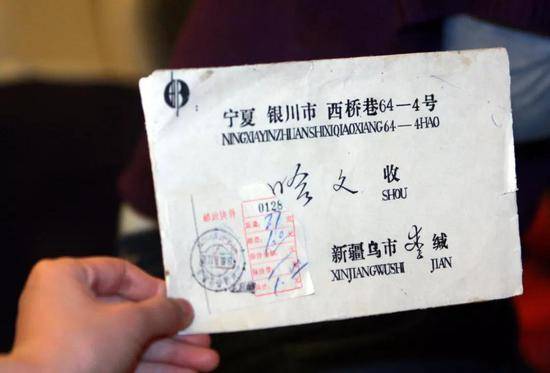 宁夏 银川市 西桥巷64—4号
NINGXIAYINZHUANSHIXIQIAOXIANG64—4HAO
哈文 收
SHOU
邮政快件
0128
新疆乌市 李 缄
XINJIANGWUSHI JIAN